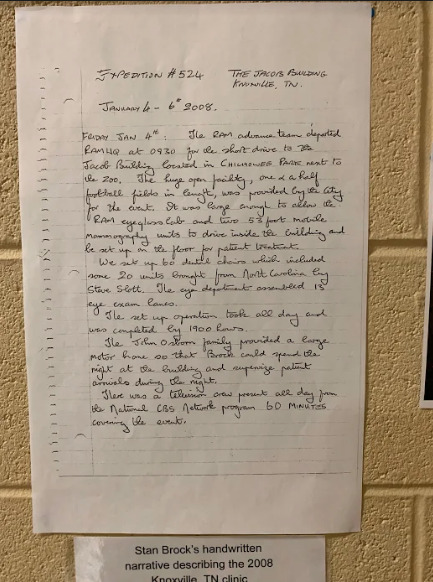 EXPEDITION #524 THE JACOB BUILDING
KNOXVILLE, TN.
JANUARY 4 - 6th 2008.
FRIDAY JAN 4th: The RAM advance team departed
RAM HQ at 0930 for the short drive to the
Jacob Building located in CHILHOWEE PARK next to
the zoo. The huge open facility, one & a half
football fields in length, was provided by the city
for the event. It was large enough to allow the
RAM eyeglass lab and two 53 foot mobile
mammography units to drive inside the building and
be set up on the floor for patient treatment.
We set up 60 dental chairs which included
some 20 units brought from North Carolina by
Steve Slott. The eye department assembled 13
eye exam lanes.
The set up operation took all day and
was completed by 1900 hours.
The John Osborn family provided a large
motor home so that Brock could spend the
night at the building and supervise patient
arrivals during the night.
There was a television crew present all day from
the National CBS Network program 60 MINUTES
covering the event.
Stan Brock's handwritten
narrative describing the 2008
Knoxville, TN clinic